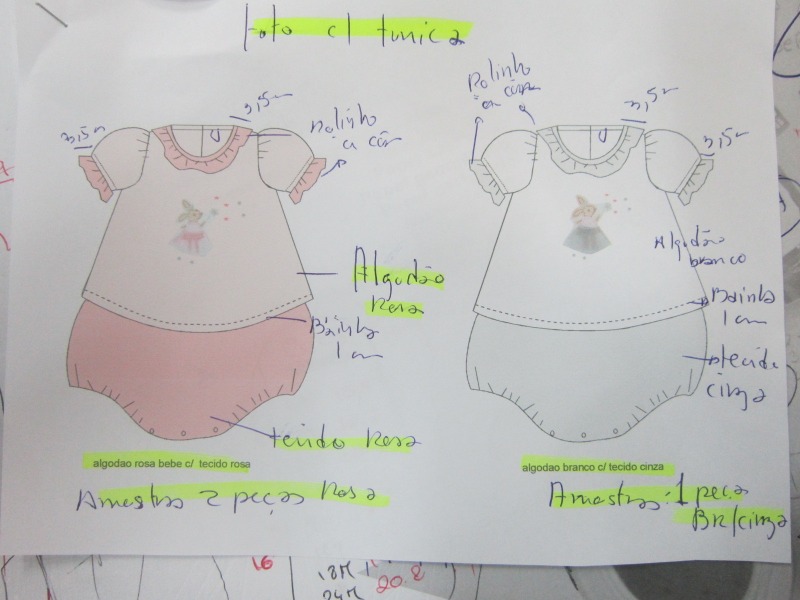 Foto c/ tunica
3,5m
3,5m
Polinho
a côr
Algodão
Rosa
Bainha
1 cm
tecido Rosa
algodao rosa bebe c/ tecido rosa
Amostras 2 peças Rosa
Polinho
3,5m
3,5m
Algodão
branco
Bainha
1 cm
tecido
cinza
algodao branco c/ tecido cinza
Amostras: 1 peça
BR/cinza
16
18M
20.8
24M